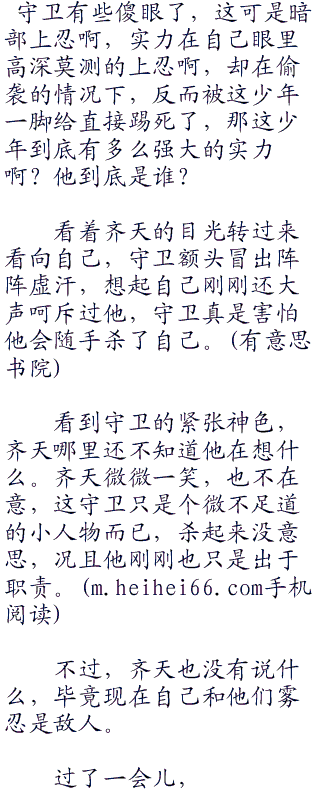 守卫有些傻眼了，这可是暗
部上忍啊，实力在自己眼里
高深莫测的上忍啊，却在偷
袭的情况下，反而被这少年
一脚给直接踢死了，那这少
年到底有多么强大的实力
啊？他到底是谁？
看着齐天的目光转过来
看向自己，守卫额头冒出阵
阵虚汗，想起自己刚刚还大
声呵斥过他，守卫真是害怕
他会随手杀了自己。(有意思
书院)
看到守卫的紧张神色，
齐天哪里还不知道他在想什
么。齐天微微一笑，也不在
意，这守卫只是个微不足道
的小人物而已，杀起来没意
思，况且他刚刚也只是出于
职责。(m.heihei66.com手机
阅读)
不过，齐天也没有说什
么，毕竟现在自己和他们雾
忍是敌人。
过了一会儿，